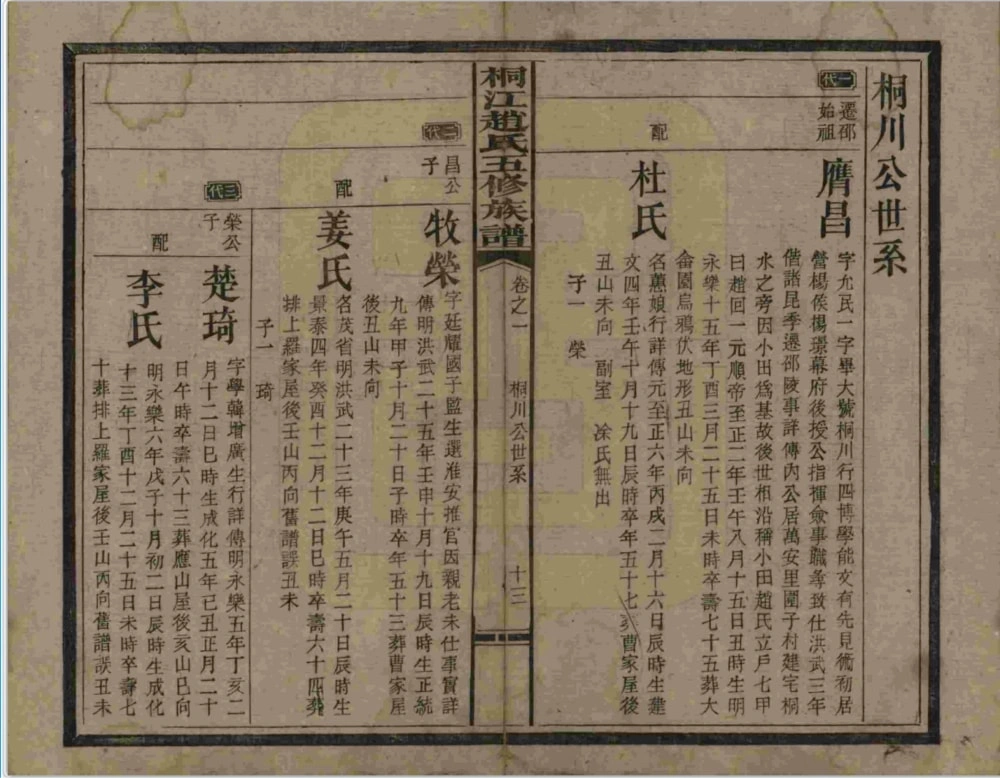 桐川公世系
一代
遷邵
始祖
膺昌
字允民一字畢大號桐川行四博學能文有先見衡初居
營楊侯楊璟幕府後授公指揮僉事職尋致仕洪武三年
偕諸昆季遷邵陵事詳傳內公居萬安里團子村建宅桐
水之旁因小田為基故後世相沿稱小田趙氏立戶七甲
曰趙回一元順帝至正二年壬午八月十五日丑時生明
永樂十五年丁酉三月二十五日未時卒壽七十五葬大
侖園烏鴉伏地形丑山未向
配
杜氏
名蕙娘行詳傳元至正六年丙戌二月十六日辰時生建
文四年壬午十月十九日辰時卒年五十七葬曹家屋後
丑山未向 副室 涂氏無出
子一 榮
桐江趙氏五修族譜
卷之一
桐川公世系
十三
二代
昌公
子
牧榮
字廷耀國子監生選淮安推官因親老未仕事實詳
傳明洪武二十五年壬申十月十九日辰時生正統
九年甲子十月二十日子時卒年五十三葬曹家屋
後丑山未向
配
姜氏
名茂省明洪武二十三年庚午五月二十日辰時生
景泰四年癸酉十二月十二日巳時卒壽六十四葬
排上羅家屋後壬山丙向舊譜誤丑未
子一 琦
三代
榮公
子
楚琦
字學韓增廣生行詳傳明永樂五年丁亥二
月十二日巳時生成化五年己丑正月二十
日午時卒壽六十三葬應山屋後亥山巳向
配
李氏
明永樂六年戊子十月初二日辰時生成化
十三年丁酉十二月二十五日未時卒壽七
十葬排上羅家屋後壬山丙向舊譜誤丑未